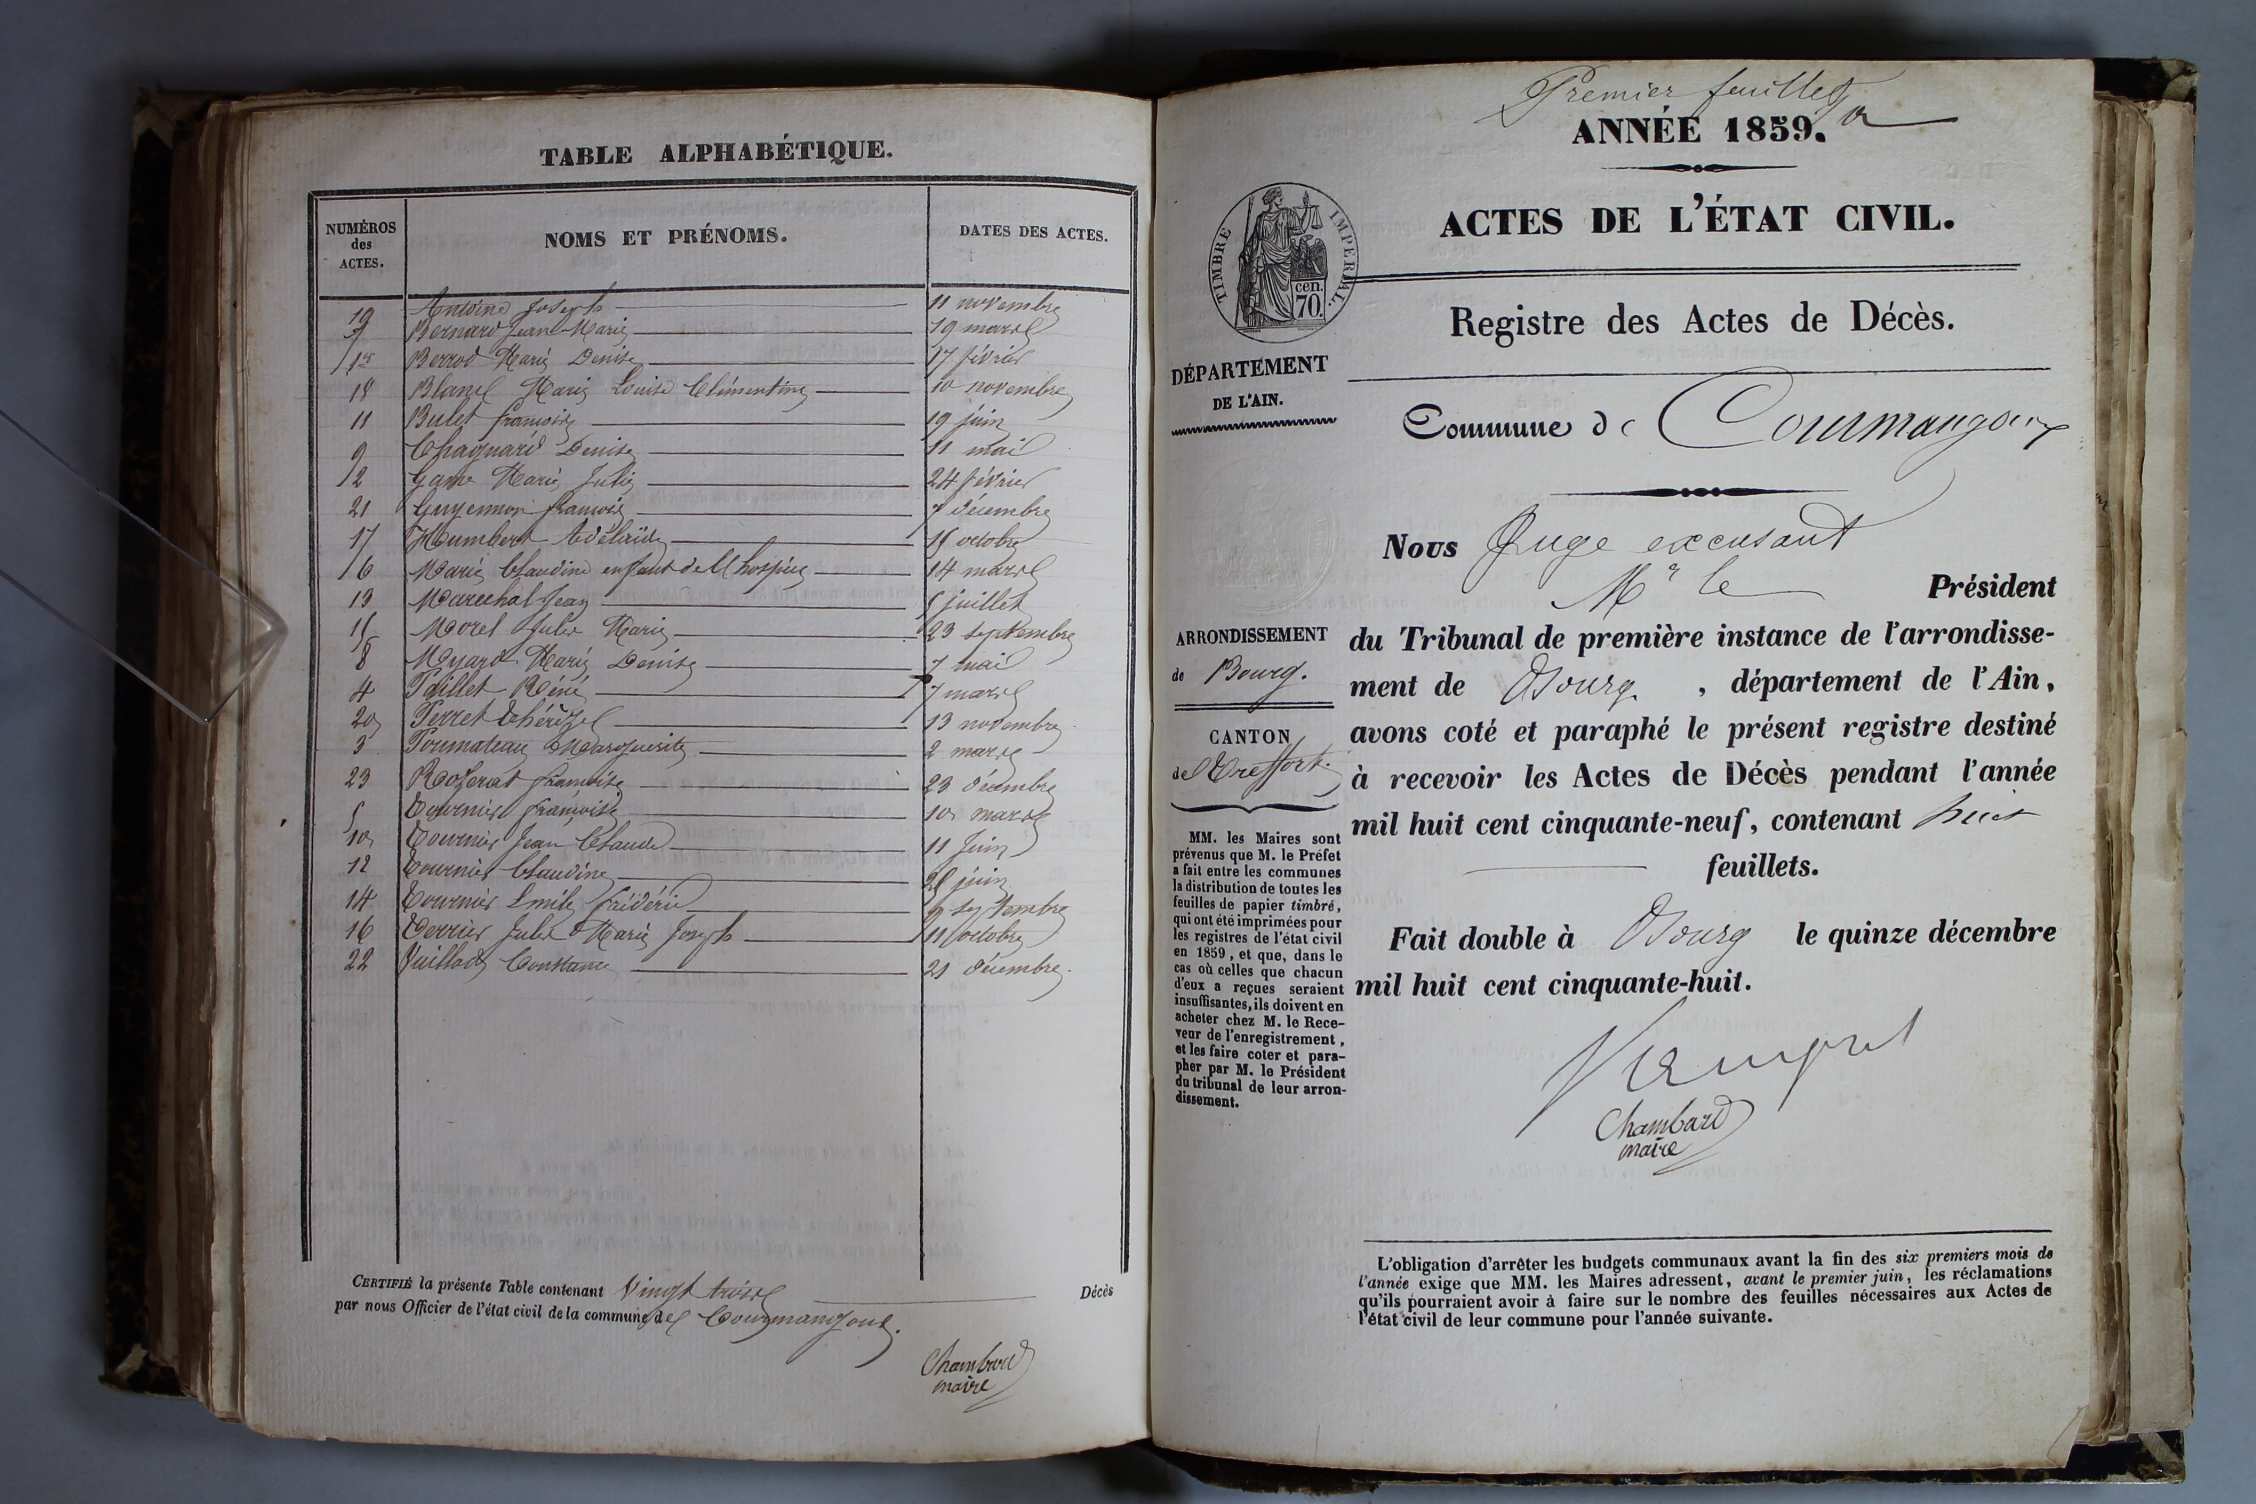 TABLE ALPHABÉTIQUE.
NUMÉROS des ACTES. NOMS ET PRÉNOMS. DATES DES ACTES.
19 Antoine Joseph 11 novembre
7 Bernard Jean Marie 19 mars
1er Berrod Marie Denise 17 février
18 Blanc Marie Louise Clémentine 10 novembre
11 Bulet françoise 19 juin
9 Chagnard Denise 11 mai
2 Game Marie Julie 24 février
21 Guyennon françois 7 décembre
17 Humbert Adélaïde 15 octobre
6 Marie Claudine enfant de l'hospice 14 mars
13 Marechal Jean 5 juillet
15 Morel Julie Marie 23 septembre
8 Myard Marie Denise 7 mai
4 Paillet Réné 7 mars
20 Perret Thérèse 13 novembre
3 Pourmateau Marguerite 2 mars
23 Roserat françoise 23 décembre
5 Tournier françoise 10 mars
10 Tournier Jean Claude 11 Juin
12 Tournier Claudine juin
14 Tournier Emile frédéric 9 septembre
16 Verrier Jules Marie Joseph 11 octobre
22 Vuillod Constance 21 décembre
CERTIFIÉ la présente Table contenant Vingt trois Décès
par nous Officier de l'état civil de la commune de Courmangoux.
Chambard
maire
Premier feuillet
ANNÉE 1859.
ACTES DE L'ÉTAT CIVIL.
TIMBRE IMPERIAL.
cen.
70.
Registre des Actes de Décès.
DÉPARTEMENT
DE L'AIN.
Commune de Courmangoux
Nous Juge excusant
Mr le Président
du Tribunal de première instance de l'arrondisse-
ment de Bourg, département de l'Ain,
avons coté et paraphé le présent registre destiné
à recevoir les Actes de Décès pendant l'année
mil huit cent cinquante-neuf, contenant huit
feuillets.
Fait double à Bourg le quinze décembre
mil huit cent cinquante-huit.
Chambard
maire
ARRONDISSEMENT
de Bourg.
CANTON
de Treffort.
MM. les Maires sont
prévenus que M. le Préfet
a fait entre les communes
la distribution de toutes les
feuilles de papier timbré,
qui ont été imprimées pour
les registres de l'état civil
en 1859, et que, dans le
cas où celles que chacun
d'eux a reçues seraient
insuffisantes, ils doivent en
acheter chez M. le Rece-
veur de l'enregistrement,
et les faire coter et para-
pher par M. le Président
du tribunal de leur arron-
dissement.
L'obligation d'arrêter les budgets communaux avant la fin des six premiers mois de
l'année exige que MM. les Maires adressent, avant le premier juin, les réclamations
qu'ils pourraient avoir à faire sur le nombre des feuilles nécessaires aux Actes de
l'état civil de leur commune pour l'année suivante.